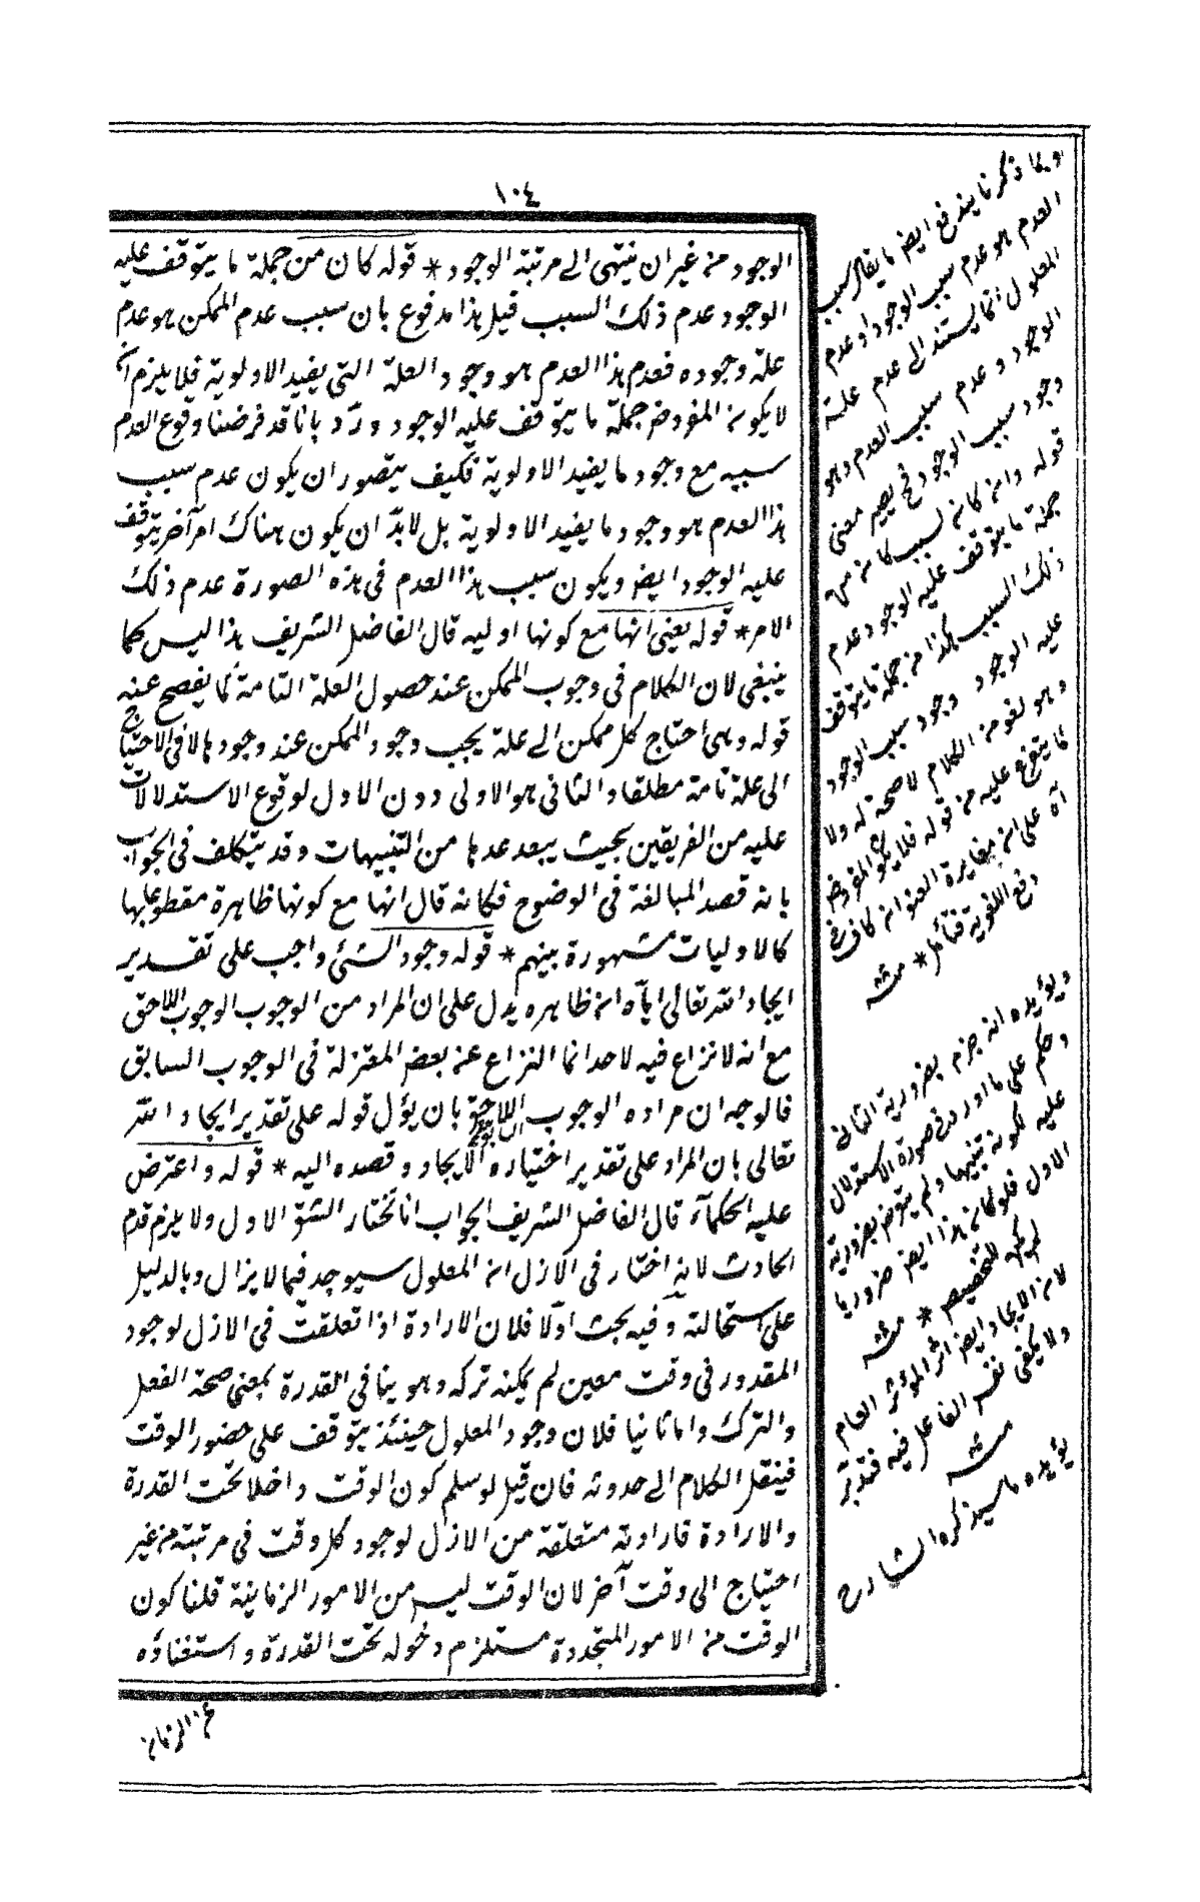 ١٠٤
الوجود من غير ان ينتهى الى مرتبة الوجود * قوله كان من جملة ما يتوقف عليه
الوجود عدم ذلك السبب قيل هذا مدفوع بان سبب عدم الممكن هو عدم
علة وجوده فعدم هذا العدم هو وجود العلة التى يفيد الاولوية فلا يلزم ان
لا يكون المفروض جملة ما يتوقف عليه الوجود وردّ بانا قد فرضنا وقوع العدم
بسببه مع وجود ما يفيد الاولوية فكيف يتصور ان يكون عدم سبب
هذا العدم هو وجود ما يفيد الاولوية بل لابدّ ان يكون هناك امر آخر يتوقف
عليه الوجود ايض ويكون سبب هذا العدم فى هذه الصورة عدم ذلك
الامر * قوله يعنى انها مع كونها اوليه قال الفاضل الشريف هذا ليس كما
ينبغى لان الكلام فى وجوب الممكن عند حصول العلة التامة كما يفصح عنه
قوله وهى احتاج كل ممكن الى علة يجب وجود الممكن عند وجودها لا فى الاحتياج
الى علة تامة مطلقا والثانى هو الاولى دون الاول لوقوع الاستدلالات
عليه من الفريقين بحيث يبعد عدها من التنبيهات وقد يتكلف فى الجواب
بانه قصد المبالغة فى الوضوح فكانه قال انها مع كونها ظاهرة مقطوعا بها
كالاوليات مشهورة بينهم * قوله وجود الشئ واجب على تقدير
ايجاد الله تعالى اياه ظاهره يدل على ان المراد من الوجوب الوجوب اللاحق
مع انه لا نزاع فيه لاحد انما النزاع عن بعض المعتزلة فى الوجوب السابق
فالوجه ان مراده الوجوب السابق بان يؤل قوله على تقدير ايجاد الله
تعالى بان المراد على تقدير اختياره الايجاد وقصده اليه * قوله واعترض
عليه الحكماء قال الفاضل الشريف الجواب انا نختار الشق الاول ولا يلزم قدم
الحادث لانه اختار فى الازل ان المعلول سيوجد فيما لا يزال وبالدليل
على استحالته وفيه بحث اولا فلان الارادة اذا تعلقت فى الازل لوجود
المقدور فى وقت معين لم يمكنه تركه وهو ينافى القدرة بمعنى صحة الفعل
والترك واما ثانيا فلان وجود المعلول حينئذ يتوقف على حضور الوقت
فينقل الكلام الى حدوثه فان قيل لو سلم كون الوقت داخلا تحت القدرة
والارادة فارادته متعلقة من الازل لوجود كل وقت فى مرتبته من غير
احتياج الى وقت آخر لان الوقت ليس من الامور الزمانية قلنا كون
الوقت من الامور المتجددة مستلزم دخوله تحت القدرة واستغناؤه
عن الزمان
وبما ذكرنا يندفع ايض ما يقال سبب
العدم هو عدم سبب الوجود او عدم
المعلول انما يستند الى عدم علة
الوجود وعدم سبب العدم وهو
وجود سبب الوجود فح يصير معنى
قوله وان كان لسبب كان من
جملة ما يتوقف عليه الوجود عدم
ذلك السبب هكذا من جملة ما يتوقف
عليه الوجود وجود سبب الوجود
وهو لغو من الكلام لا صحة له ولا
لما يتفرع عليه من قوله فلا يكون المفروض
آه على ان مغايرة العنوان كاف فى
دفع اللغوية فتأمل * منه
ويؤيده انه جزم بضرورية الثانى
وحكم على ما اورد فى صورة الاستدلال
عليه بكونه تنبيها ولم يتعرض بضرورية
الاول فلو كان هذا ايض ضروريا
للتخصيص * منه
لان الايجاد ايض اثر المؤثر التام
ولا يكفى نفس الفاعل فيه فتدبر
منه
يؤيده ما سيذكره الشارح